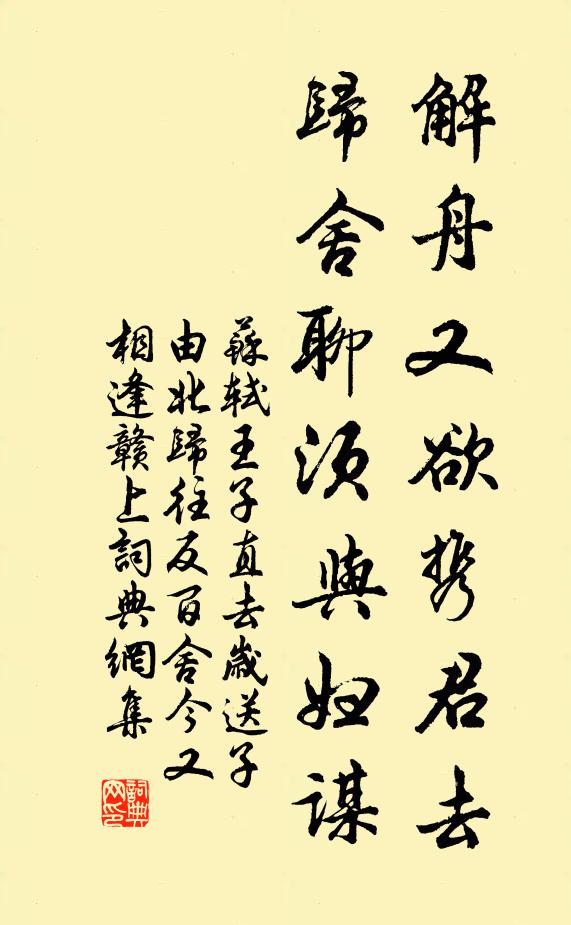 解舟又欲携君去
歸舍聊須與婦謀
蘇軾王子直去歲送子
由北歸往反百舍今又
相逢贛上詞典網集
詞典
网印